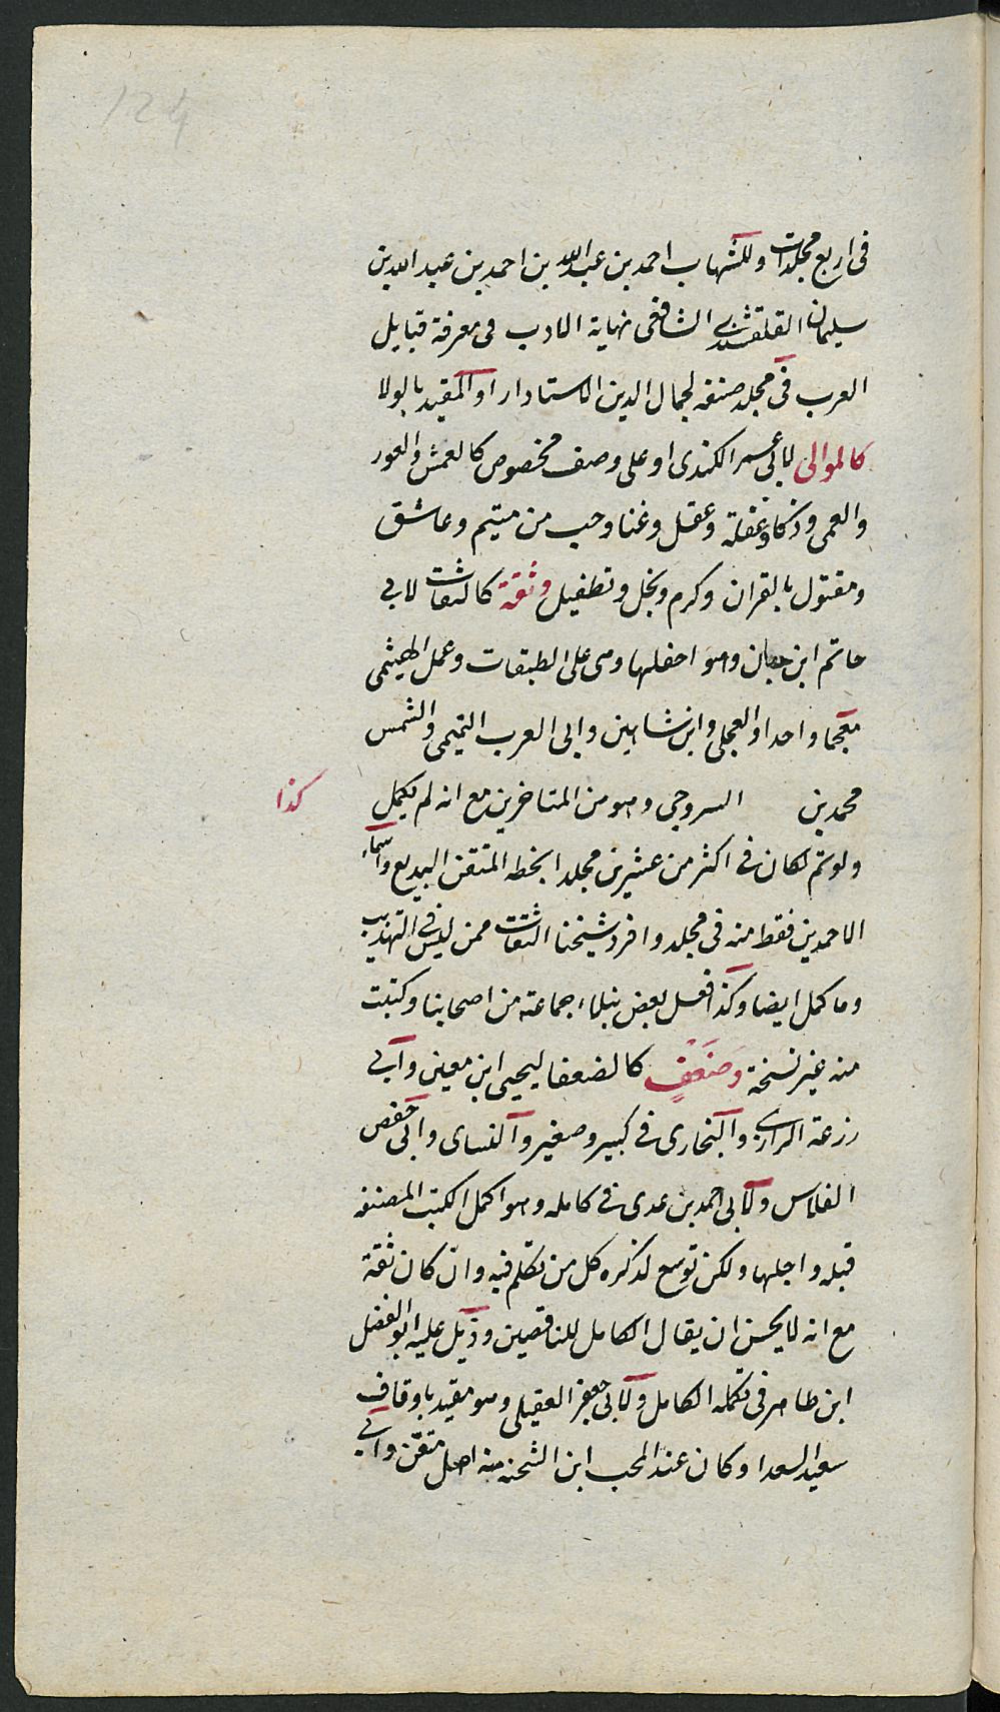 124
فى اربع مجلدات وللشهاب احمد بن عبد الله بن احمد بن عبد الله بن
سليمان القلقشندى الشافعى نهاية الادب فى معرفة قبايل
العرب فى مجلد صنفه لجمال الدين الاستادار او المقيد بالولا
كالموالى لابى عمر الكندى او على وصف مخصوص كالعمش والعور
والعمى وذكا وغفلة وعقل وغنا وحب من متيم وعاشق
ومقتول بالقران وكرم وبخل وتطفيل وثقة كالثقات لابى
حاتم ابن حبان وهو احفلها وهى على الطبقات وعمل الهيثمى
معجما واحدا والعجلى وابن شاهين وابى العرب التميمى والشمس
محمد بن السروجى وهو من المتاخرين مع انه لم يكمل
كذا
ولو تم لكان فى اكثر من عشرين مجلدا بخطه المتقن البديع واسماء
الاحمدين فقط منه فى مجلد وافرد شيخنا الثقات ممن ليس فى التهذيب
وما كمل ايضا وكذا فعل بعض نبلاء جماعته من اصحابنا وكتبت
منه غير نسخة وضَعْفٍ كالضعفا ليحيى ابن معين وابى
زرعة الرازى والبخارى فى كبير وصغير والنساى وابى حفص
الفلاس ولابى احمد بن عدى فى كامله وهو اكمل الكتب المصنفه
قبله واجلها ولكن توسع لذكره كل من تكلم فيه وان كان ثقة
مع انه لا يحسن ان يقال الكامل للناقصين وذيل عليه ابو الفضل
ابن طاهر فى تكملة الكامل ولابى جعفر العقيلى وهو مقيد باوقاف
سعيد السعدا وكان عند المحب ابن الشحنه منه اصل متقن وابى